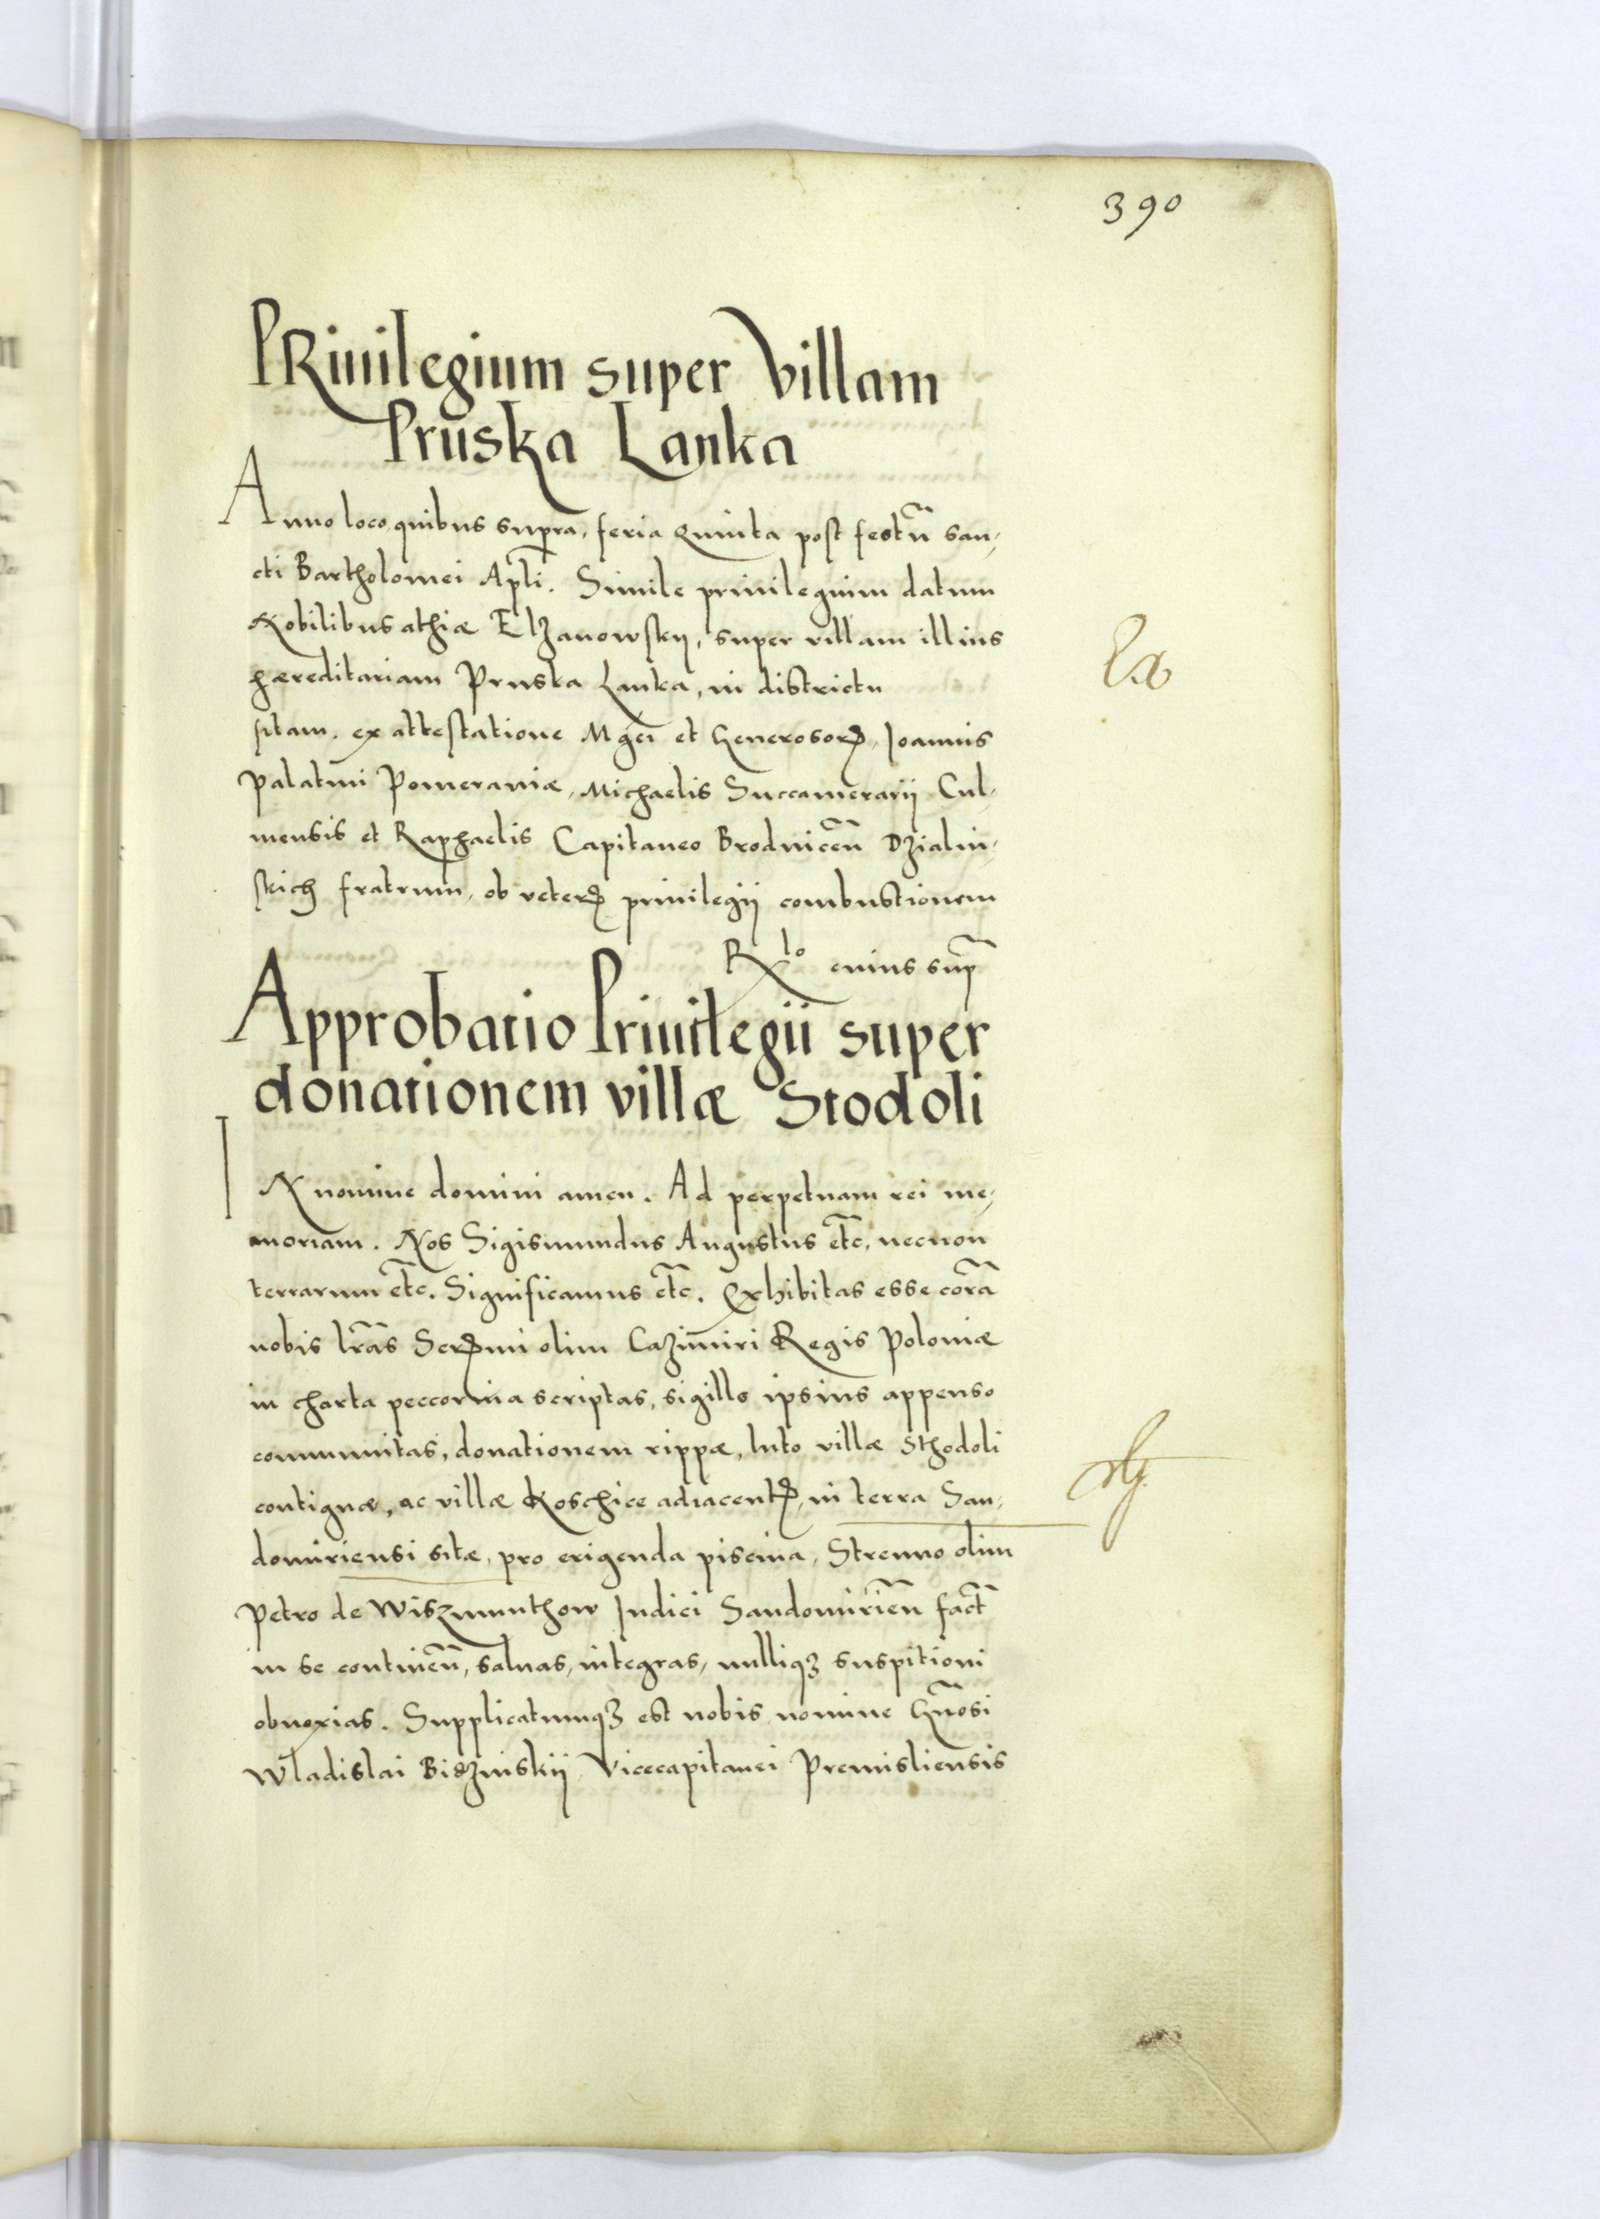 390
PRiuilegium super villam
Pruska Lanka
Anno loco quibus supra, feria Quinta post festū san,
cti Bartholomei Apli. Simile priuilegium datum
Nobilibus athiæ Elzanowskij, super villam illius
hæreditariam Pruska Lanka, in districtu
sitam. ex attestatione Mgci et Generosorꝝ, Joannis
Palatini Pomeraniæ, Michaelis Succamerarij Cul,
mensis et Raphaelis Capitaneo Brodnicen̄ Dzialin,
skich fratrum, ob veterꝝ priuilegij combustionem
Rlo cuius sup̄
Approbatio Priuilegii super
donationem villæ Stodoli
IN nomine domini amen. Ad perpetuam rei me,
moriam. Nos Sigismundus Augustus etc, necnon
terrarum etc. Significamus etc. Exhibitas esse corā
nobis lrās Serꝝmi olim Cazimiri Regis Poloniæ
in charta peccorina scriptas, sigillo ipsius appenso
communitas, donationem rippæ, luto villæ Sthodoli
contiguæ, ac villæ Koschice adiacentꝝ, in terra San,
domiriensi sitæ, pro erigenda piscina, Strenuo olim
Petro de Wiszmunthow Judici Sandomirien̄ fact̄
in se continen̄, saluas, integras, nulliqȝ suspitioni
obnoxias. Supplicatumqȝ est nobis nomine Gn̄osi
Wladislai Bidzinskij Vicecapitanei Premisliensis